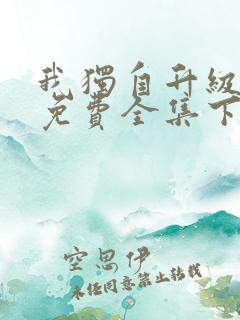 我獨自升級
免費全集下
空思伊
未经同意禁止转载